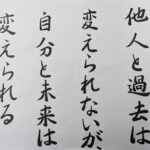 他人と過去は
変えられないが、
自分と未来は
変えられる